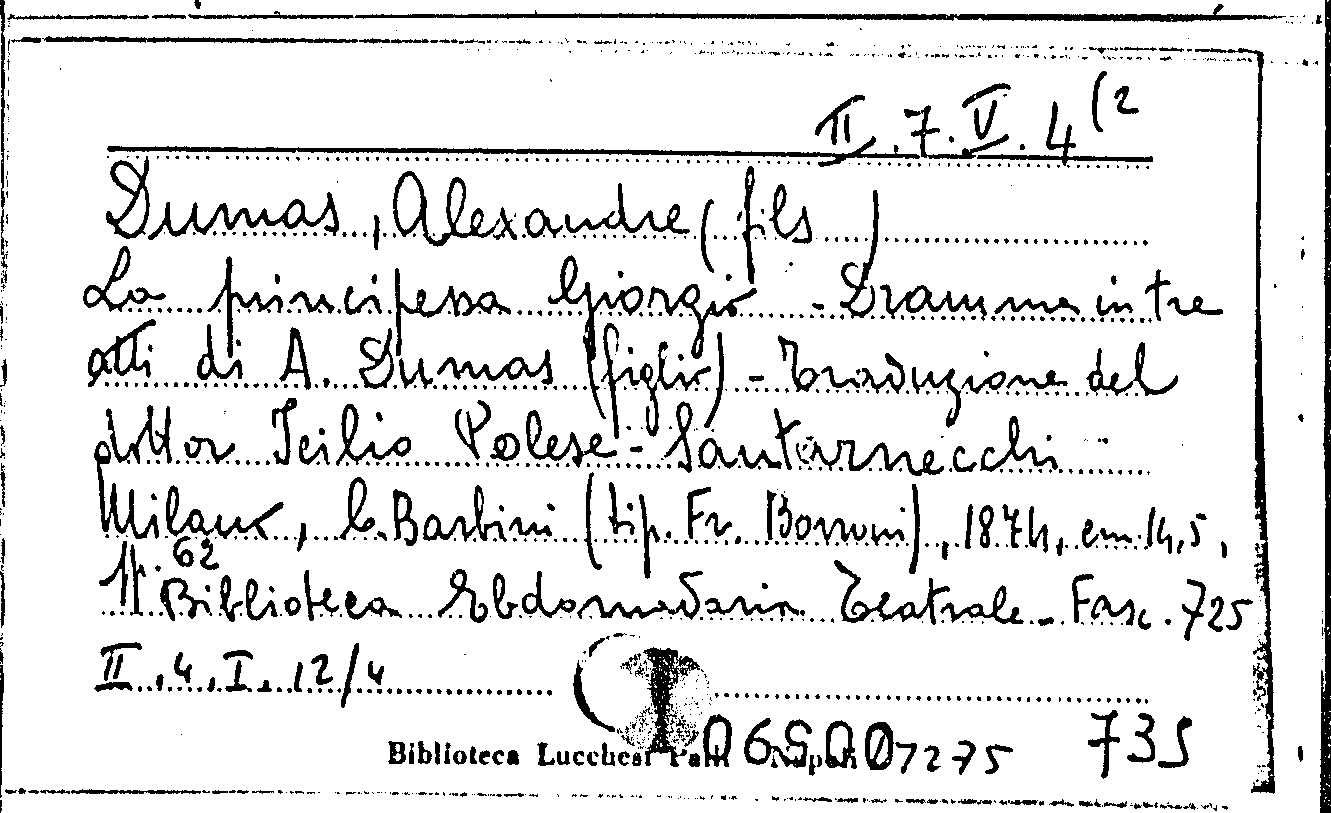 II.7.V.4(2
Dumas, Alexandre (fils)
La principessa Giorgio - Dramma in tre
atti di A. Dumas (figlio) - Traduzione del
dottor Icilio Polese-Santarnecchi
Milano, C. Barbini (tip. Fr. Borroni), 1874, cm. 14,5,
pp. 62
Biblioteca Ebdomadaria Teatrale - Fasc. 725
II.4.I.12/4
Biblioteca Lucchesi Palli Napoli 7275 735